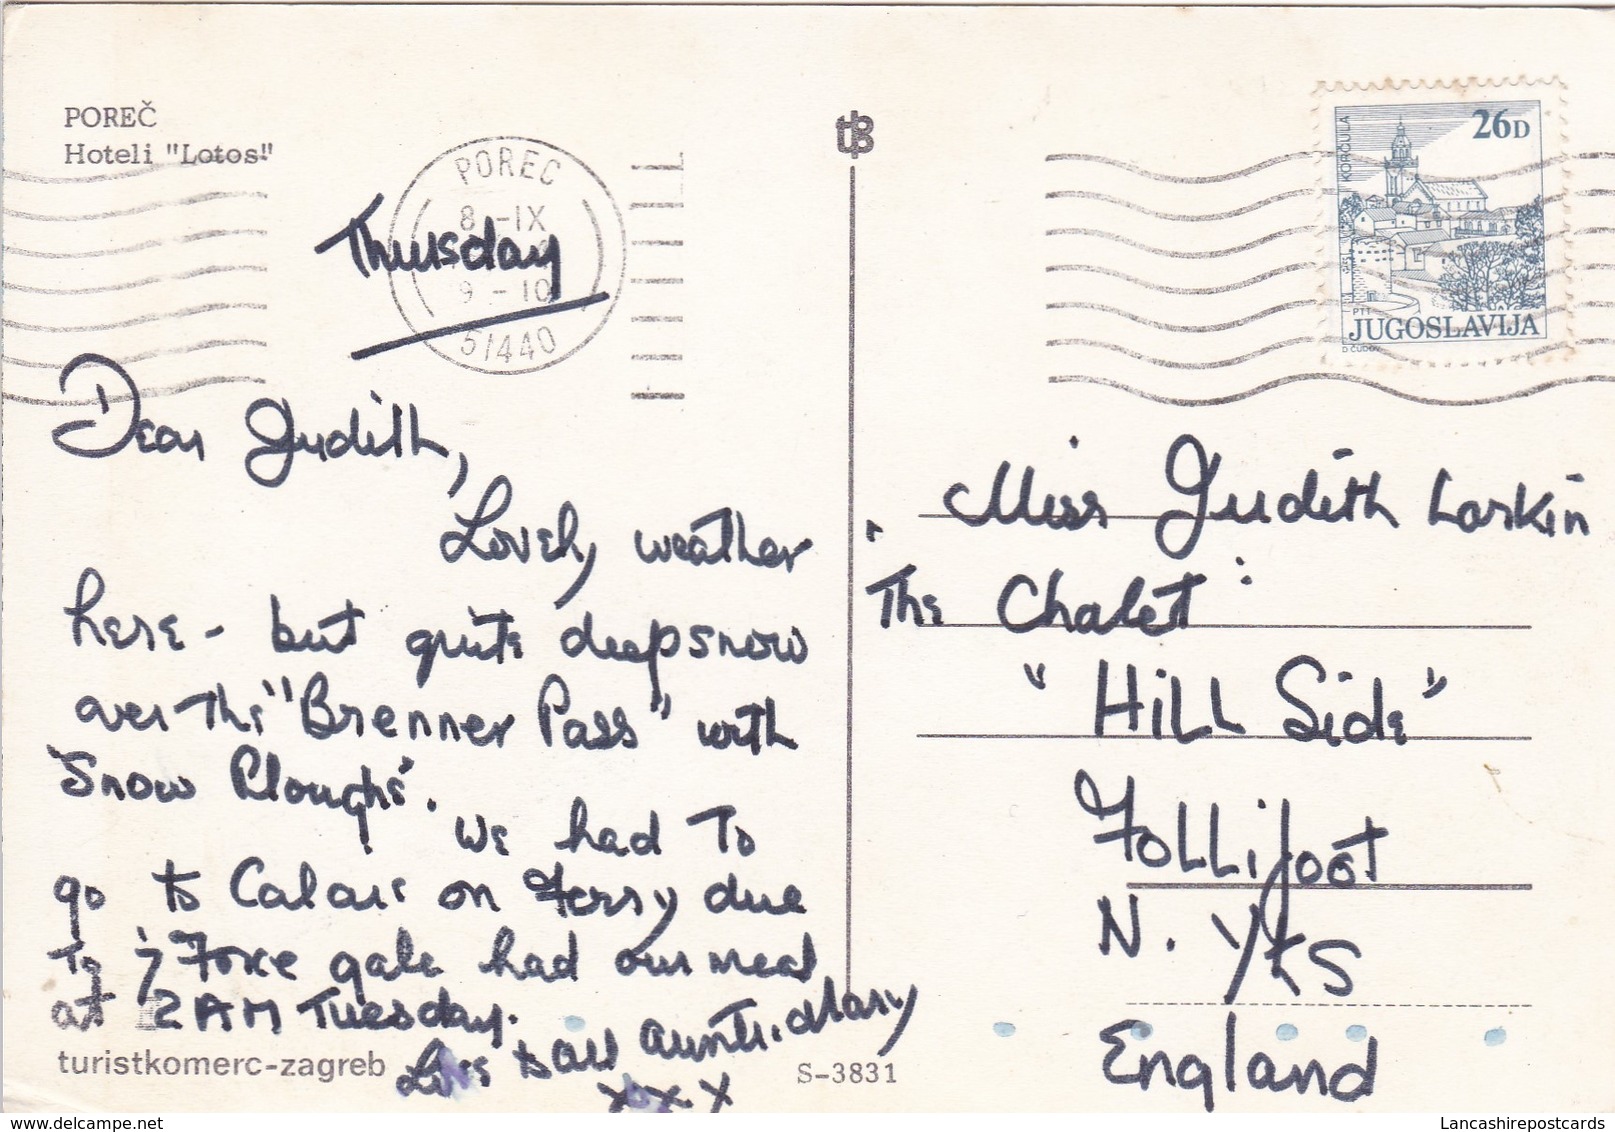 POREČ
Hoteli "Lotos"
POREČ
8 -IX
9 - 10
51440
Thursday
Dear Judith,
Lovely weather
here - but quite deep snow
over the "Brenner Pass" with
"Snow Ploughs".
We had to
go to Calais on Ferry due
to 7 Force gale had our meal
at 2 AM Tuesday.
Love to all Auntie Mary
x x x
turistkomerc-zagreb
S-3831
tB
26D
KORČULA
PTT
JUGOSLAVIJA
Miss Judith Larkin
"The Chalet"
"Hill Side"
Follifoot
N. Yks
England
www.delcampe.net
Lancashirepostcards